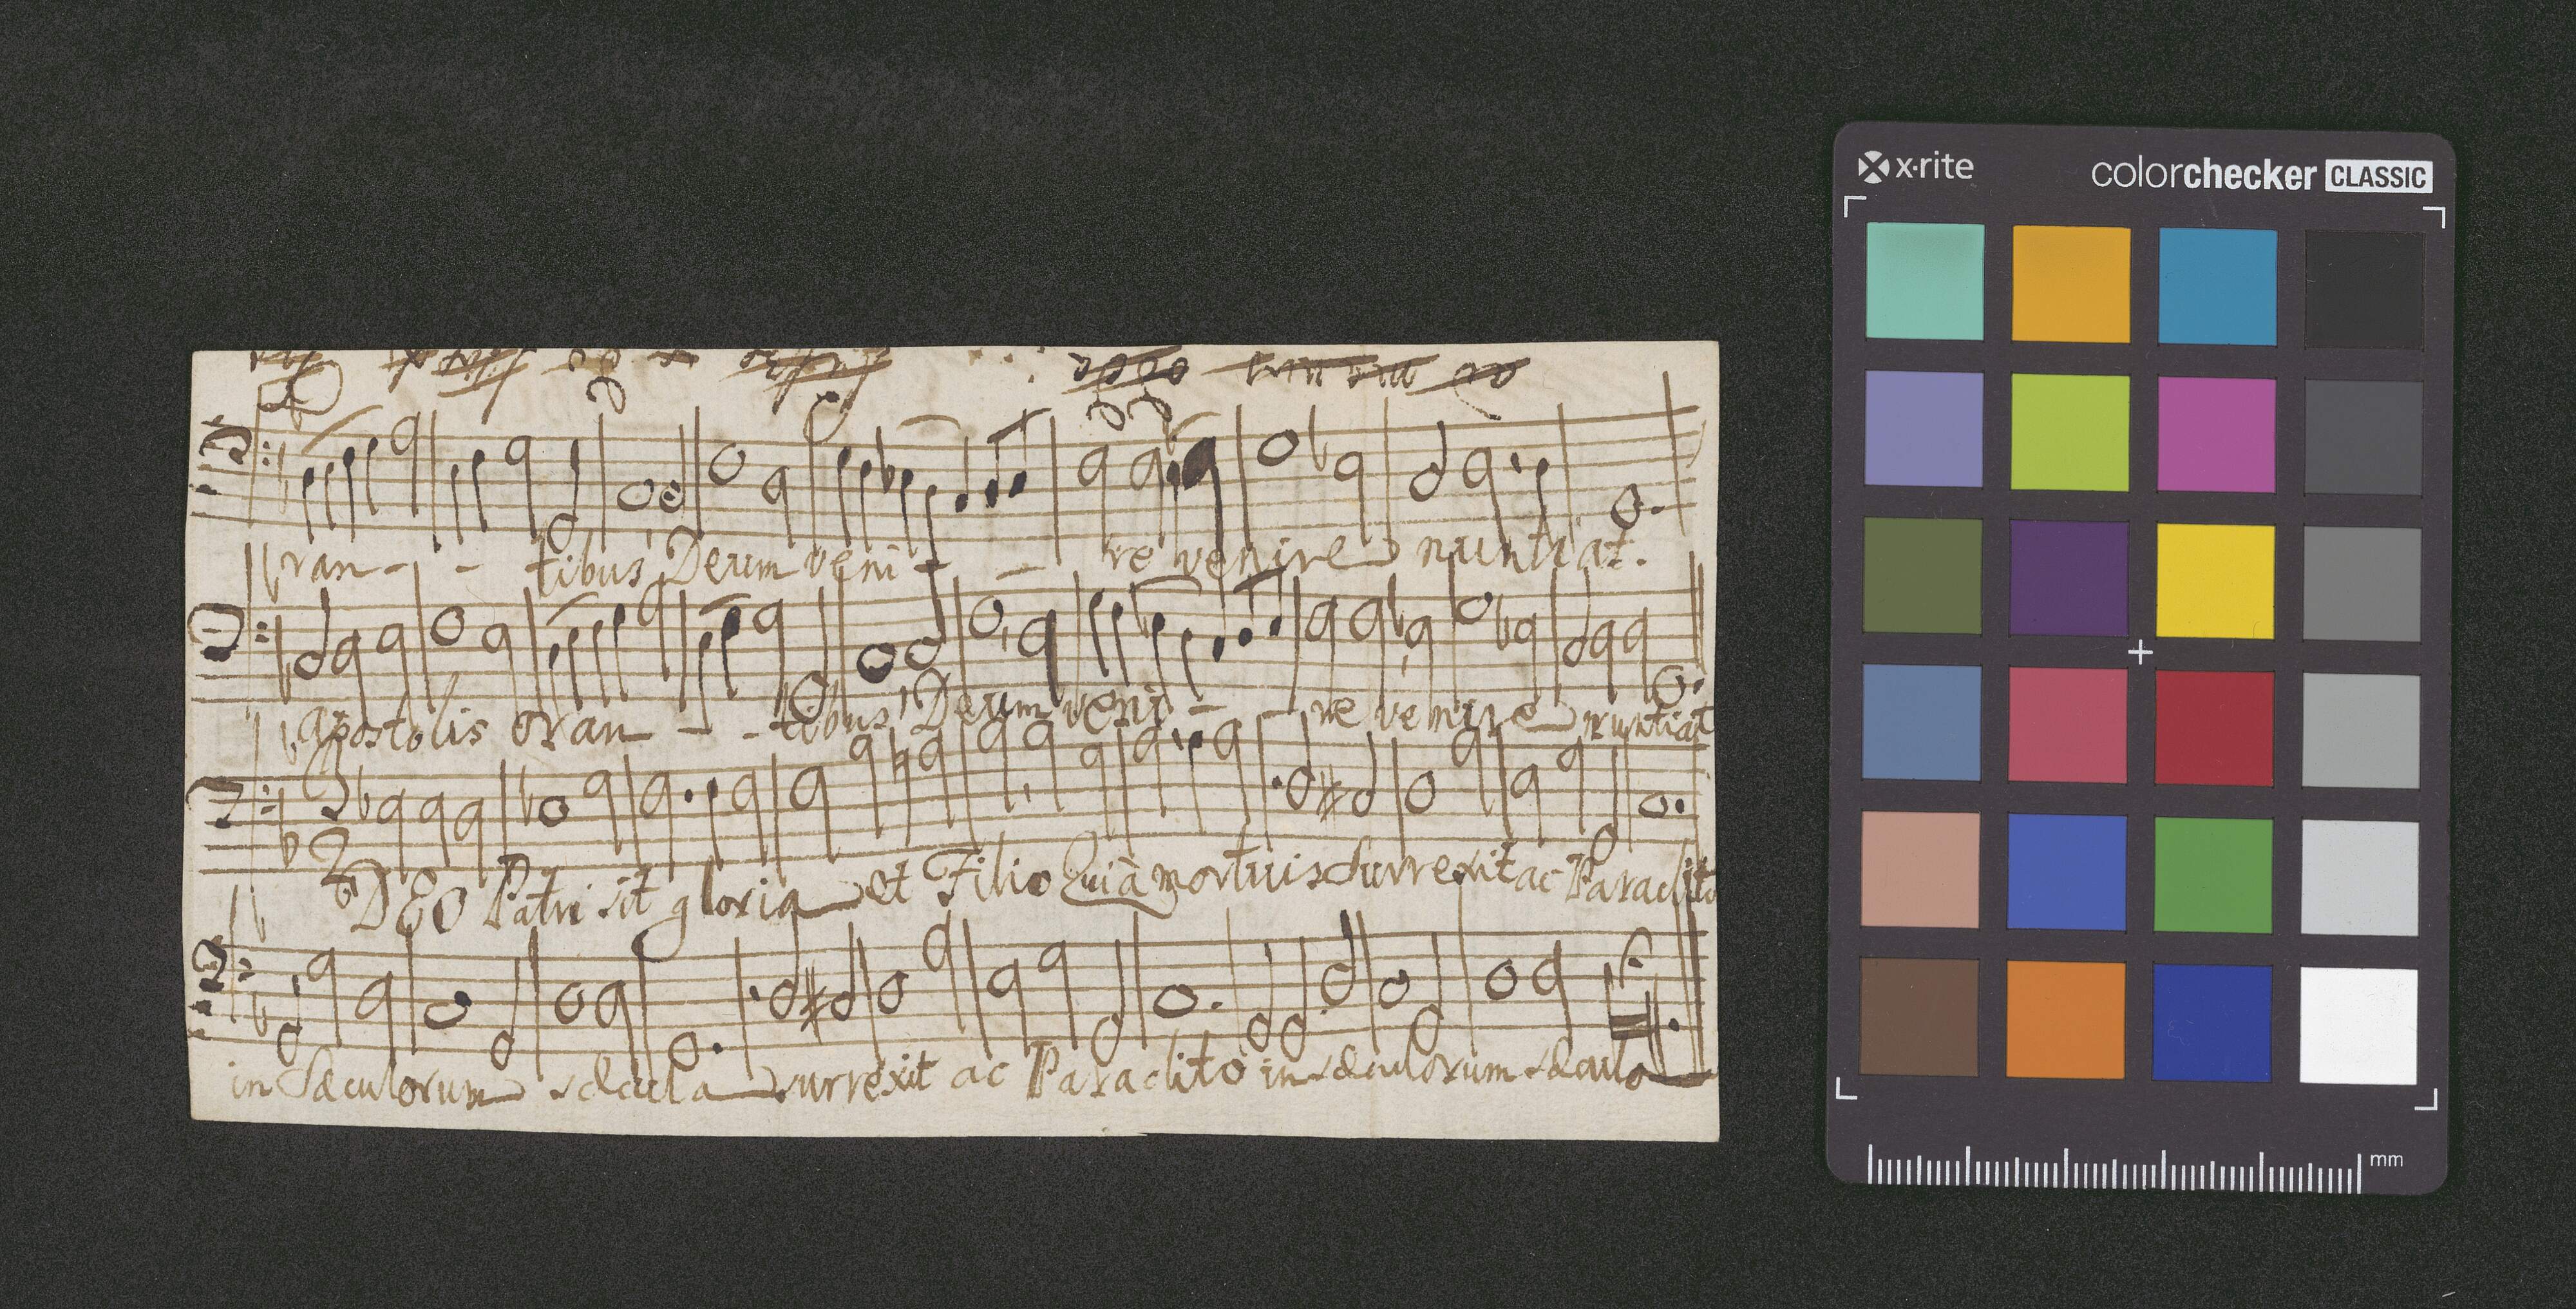 ran - - - tibus Deum veni - - re venire nuntiat.
apostolis oran - - tibus Deum veni - - re venire nuntiat
DEO Patri sit gloria et Filio Qui à mortuis Surrexit ac Paraclito
in Sæculorum sæcula surrexit ac Paraclito in sæculorum sæcula
x·rite
colorchecker CLASSIC
mm